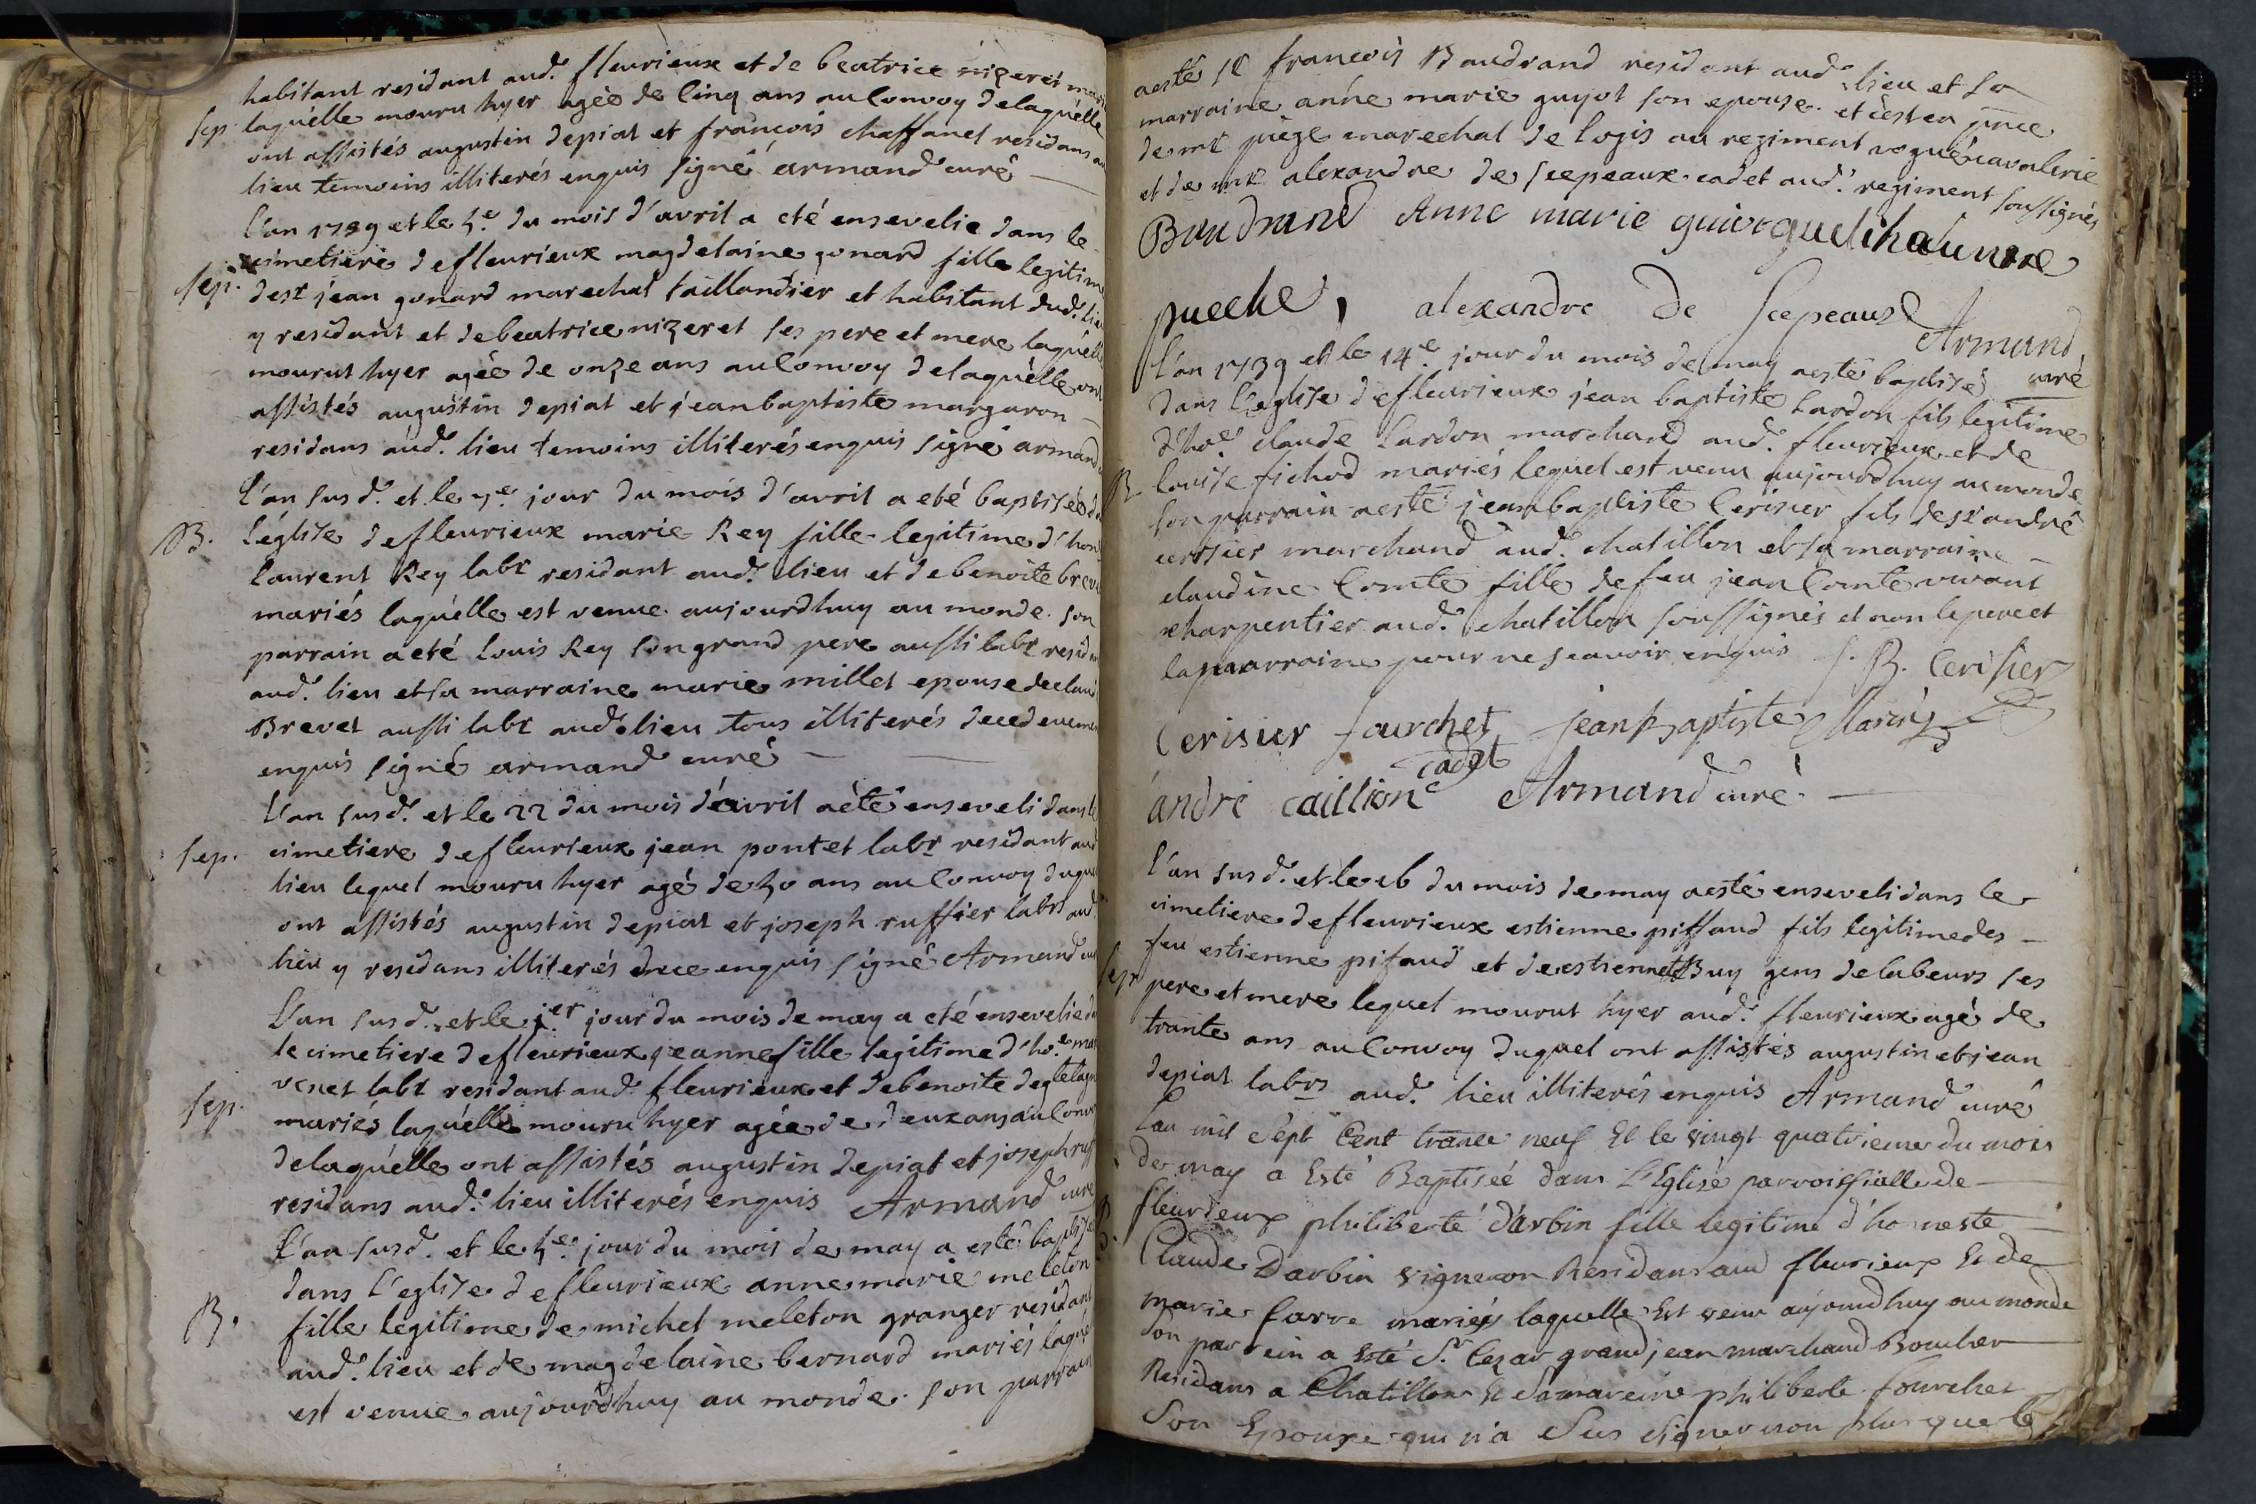 habitant residant aud.^e fleurieux et de beatrice nizeret mar
sep. laquélle mouru hyer agèe de Cinq ans au Convoy delaquélle
ont assistés augustin depiat et françois chaffanel residans au
lieu temoins illiterés enquis signé armand curé
l'an 1739 et le 5.^e du mois d'avril a eté ensevelie dans le
sep. cimetiere de fleurieux magdelaine gonard fille legitime
de s^r jean gonard marechal taillandier et habitant dud.^e lieu
y residant et de beatrice nizeret ses pere et mere laquélle
mourut hyer agée de onze ans au Convoy delaquélle ont
assistés augustin depiat et jean baptiste margaron
residans aud.^e lieu temoins illiterés enquis signé armand
L'an sus d.^e et le 7.^e jour du mois d'avril a eté baptisée d
B. l'église de fleurieux marie Rey fille legitime d'hon
laurent Rey lab^r residant aud.^e lieu et de benoite breve
mariés laquélle est venue aujourdhuy au monde son
parrain a eté Louis Rey son grand pere aussi lab^r residan
aud.^e lieu et sa marraine marie millet epouse declaud
Brevet aussi lab^r aud.^e lieu tous illiterés decedeueme
enquis signé armand curé
L'an sus d.^e et le 22 du mois d'avril aèté enseveli dans le
sep. cimetiere de fleurieux jean pontet lab^r residant aud
lieu lequel mouru hyer agé de 50 ans au Convoy duquel
ont assistés augustin depiat et joseph ruffier lab^rs aud.
lieu y residans illiterés dece enquis signé Armand cu
L'an sus d. et le j.^er jour du mois de may a eté ensevelie d
le cimetiere de fleurieux jeanne fille legitime d'ho.^e mar
sep. venet lab^r residant aud. fleurieux et de benoite degletagn
mariés laquélle mouru hyer agée de deux ans au Convo
delaquélle ont assistés augustin depiat et joseph ruff
residans aud.^e lieu illiterés enquis Armand cure
L'an susd. et le 5.^e jour du mois de may a esté baptise
dans l'eglise de fleurieux anne marie meleton
B. fille legitime de michel meleton granger residant
aud.^e lieu et de magdelaine bernard mariés laque
est venue aujourdhuy au monde son parrain
aesté s^r françois Baudrand residant aud.^e lieu et sa
marraine anne marie guyot son epouse et c'est en pnce
de m^r piège marechal de logis au regiment vogué cavalerie
et de m^r alexandre de scepeaux cadet aud.^e regiment soussignés
Baudrand Anne marie guiot
puecke, alexandre de Scepeaux
Armand
curé
L'an 1739 et le 14.^e jour du mois de may aesté baptisé
dans l'eglise de fleurieux jean baptiste Lardon fils legitime
d'ho.^e claude Lardon marchand aud.^e fleurieux et de
B. louise fichod mariés lequel est venu aujourdhuy au monde
son parrain aesté jean baptiste Cerisier fils de s^r andré
cerisier marchand aud.^e chatillon et sa marraine
claudine Comte fille de feu jean Comte vivant
charpentier aud.^e chatillon soussignés et non le pere et
la marraine pour ne scavoir enquis J. B. Cerisier
Cerisier fourchet jean baptiste
cadet
andré caillion Armand curé
L'an sus d.^e et le 16 du mois de may aesté enseveli dans le
cimetiere de fleurieux estienne piffaud fils legitime des
feu estienne pifaud et de estiennete Buy gens de labeurs ses
sep. pere et mere lequel mourut hyer aud.^e fleurieux agé de
trante ans au Convoy duquel ont assistés augustin et jean
depiat lab^rs aud.^e lieu illiterés enquis Armand curé
L'an mil sépt Cent trante neuf Et le vingt quatrieme du mois
de may a Esté Baptiséé dans l'Eglise parroissialle de
B. fleurieux philiberte d'arbin fille legitime d'honneste
Claude Darbin vigneron Residans aud fleurieux Et de
marie farre mariés laquelle Est venu aujourdhuy au monde
Son parrein a Esté S.^r Cezar grand jean marchand Boucher
Residans a Chatillon Et Samareine philiberte fourchet
Son Epouse qui n'a Sus signer non plus que le